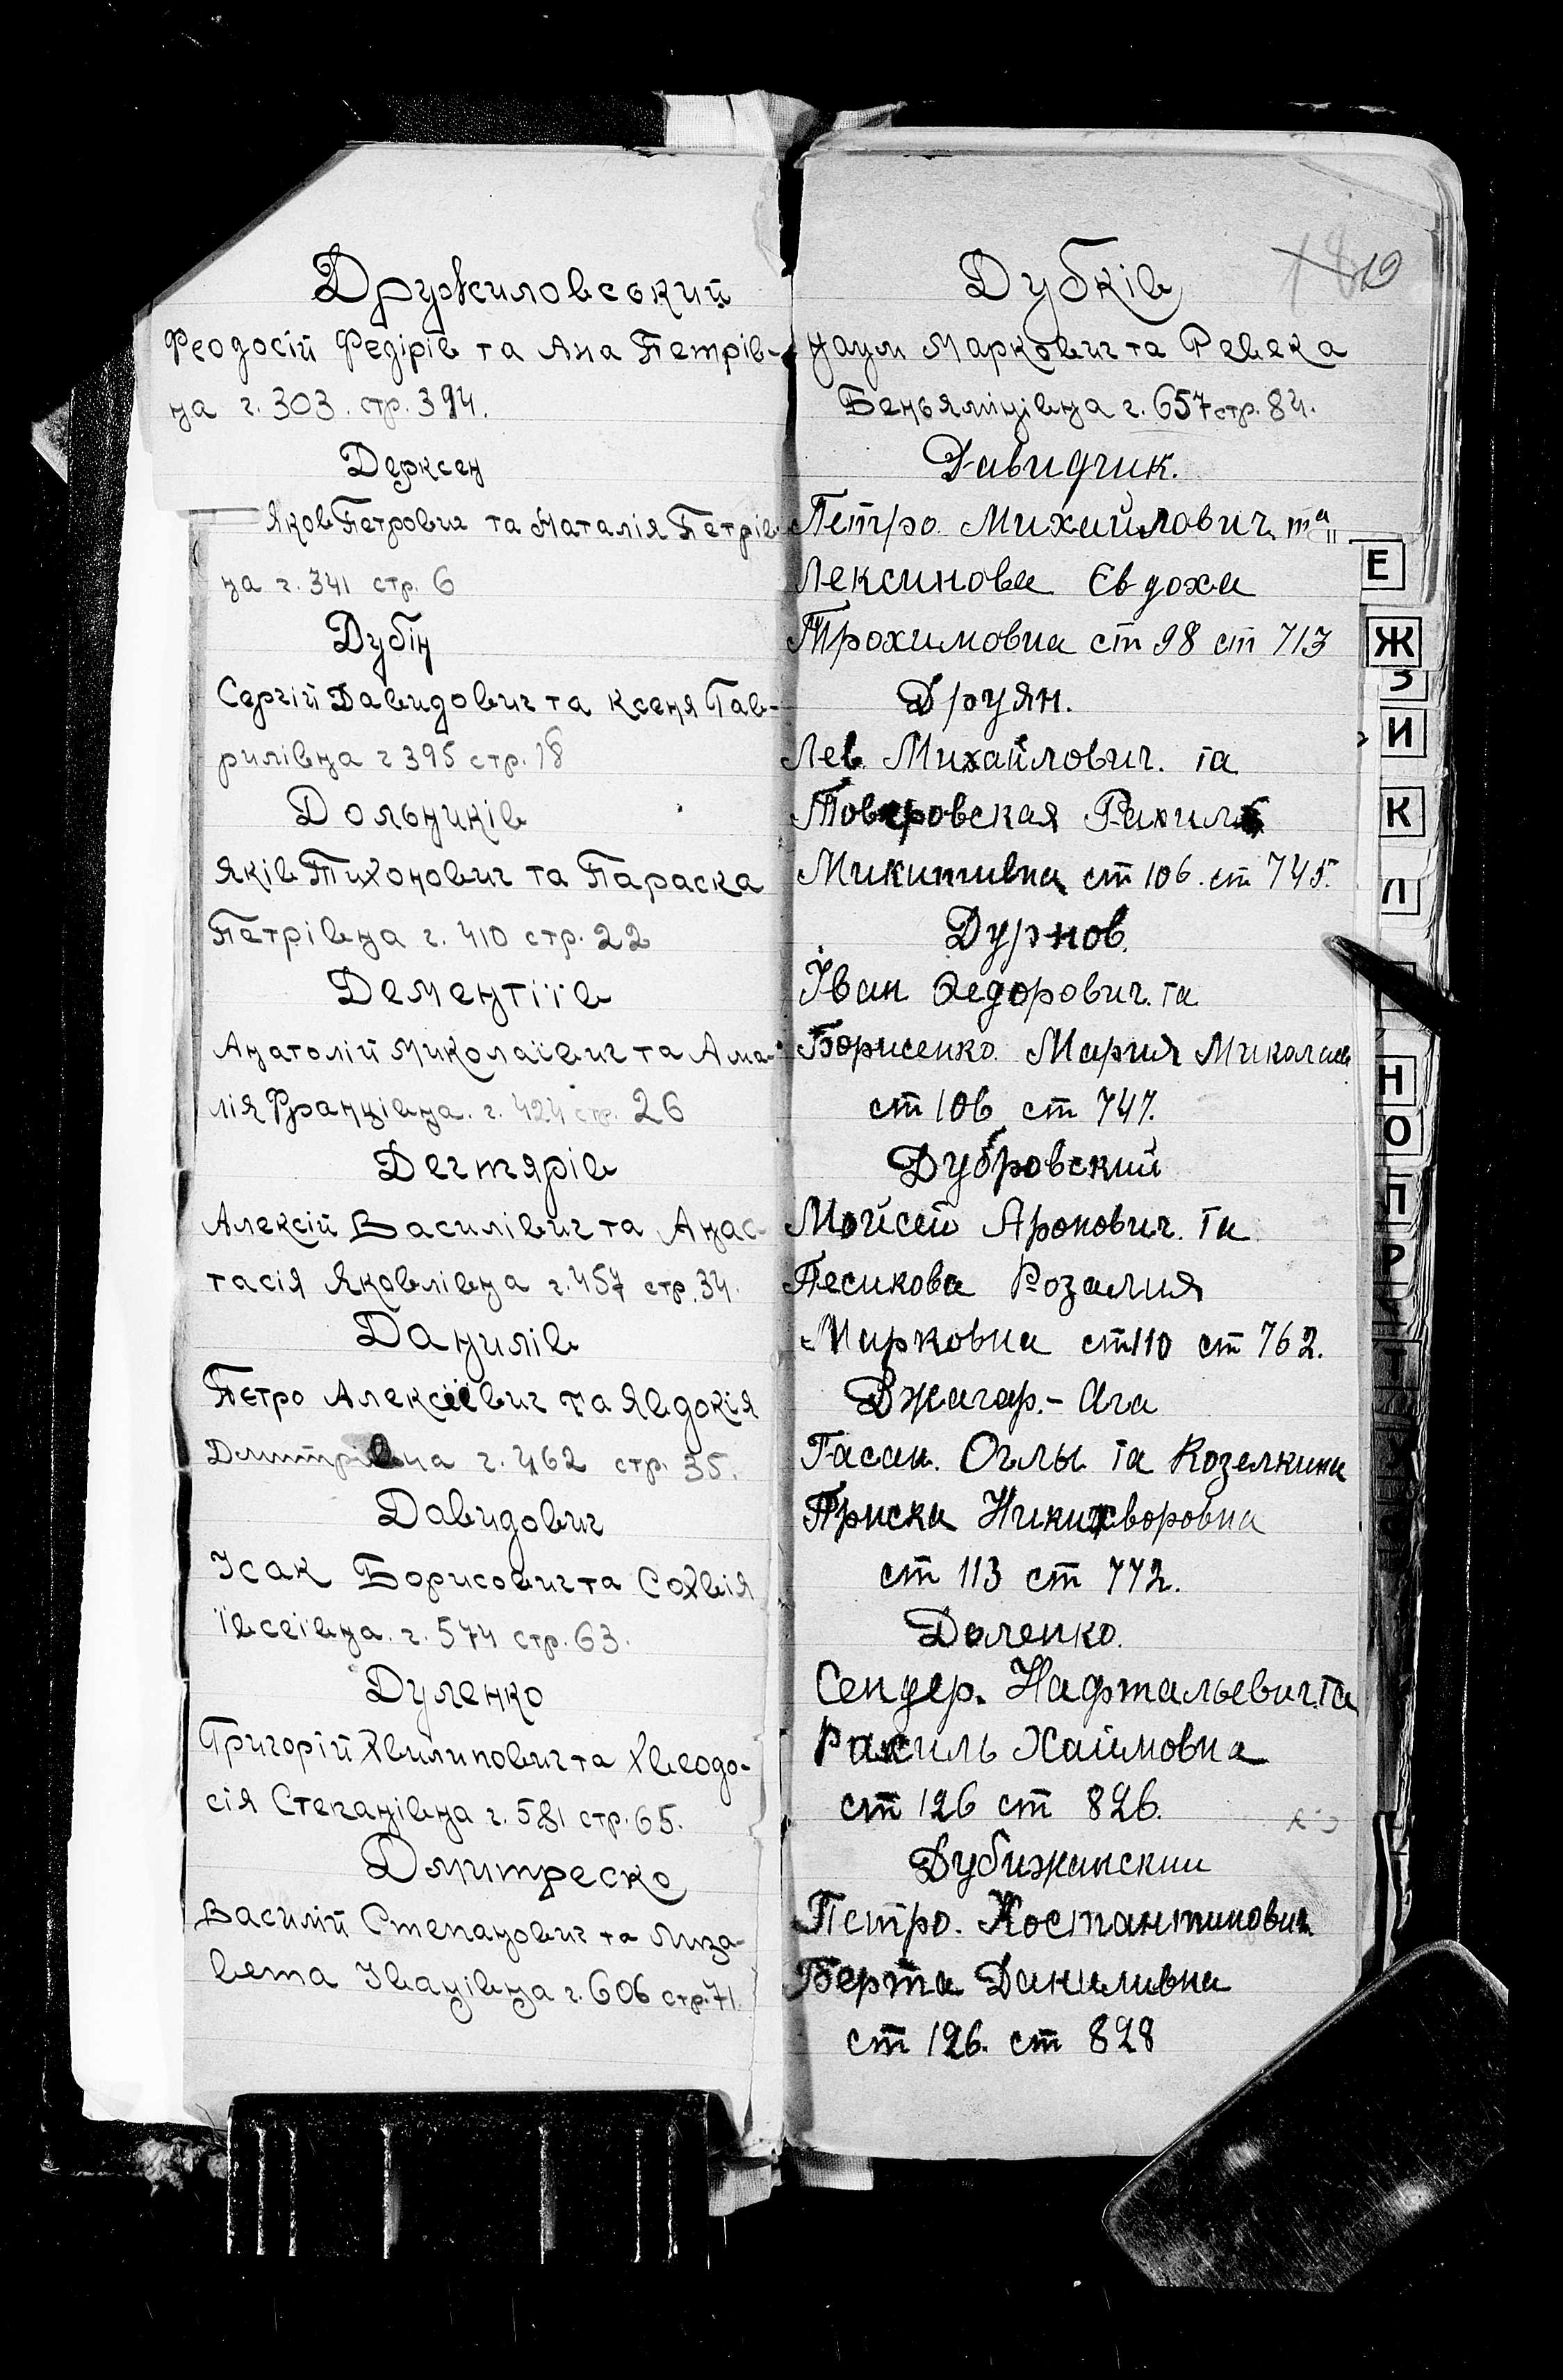 Дружиловський
Феодосій Федірів та Ана Петрів-
на г. 303. стр. 394.
Дерксен
Яков Петрович та Наталія Петрів
на г. 341 стр. 6
Дубін
Сергій Давидович та Ксеня Гав-
рилівна г 395 стр. 18
Дольників
Яків Тихонович та Параска
Петрівна г. 410 стр. 22
Дементіїв
Анатолій Миколаївич та Ама-
лія Францівна. г. 424 стр. 26
Дегтярів
Алексій Василівич та Анас-
тасія Яковлівна г. 457 стр. 34.
Данилів
Петро Алексіївич та Явдокія
Дмитрівна г. 462 стр. 35.
Давидович
Ісак Борисович та Софія
Івсеївна. г. 574 стр. 63.
Дуленко
Григорій Хвилипович та Хвеодо-
сія Степанівна г. 581 стр. 65.
Дмитреско
Василій Степанович та Лиза-
вета Іванівна г. 606 стр. 71.
19
Дубків
Наум Маркович та Ревека
Беньямінівна г. 657 стр. 84.
Давидчик.
Петро. Михайлович та
Лексинова Євдоха
Трохимовна ст 98 ст 713
Друян.
Лев. Михайлович. та
Рахиль
Микитивна ст 106. ст 745.
Дурнов.
Іван Федорович. та
Борисенко. Мария Миколаев
ст 106 ст 747.
Дубровский
Мойсей Аронович. та
Песикова Розалия
Марковна ст 110 ст 762.
Джагар.- Ага
Гасан. Оглы та Козелкина
Приска Никихворовна
ст 113 ст 772.
Доленко.
Сендер. Нафтальевич. та
Рахиль Хаимовна
ст 126 ст 826.
Дубижанский
Петро. Костантинович
Берта Даниливна
ст 126. ст 828
Е
Ж
З
И
К
Л
Н
О
П
Р
Т
У